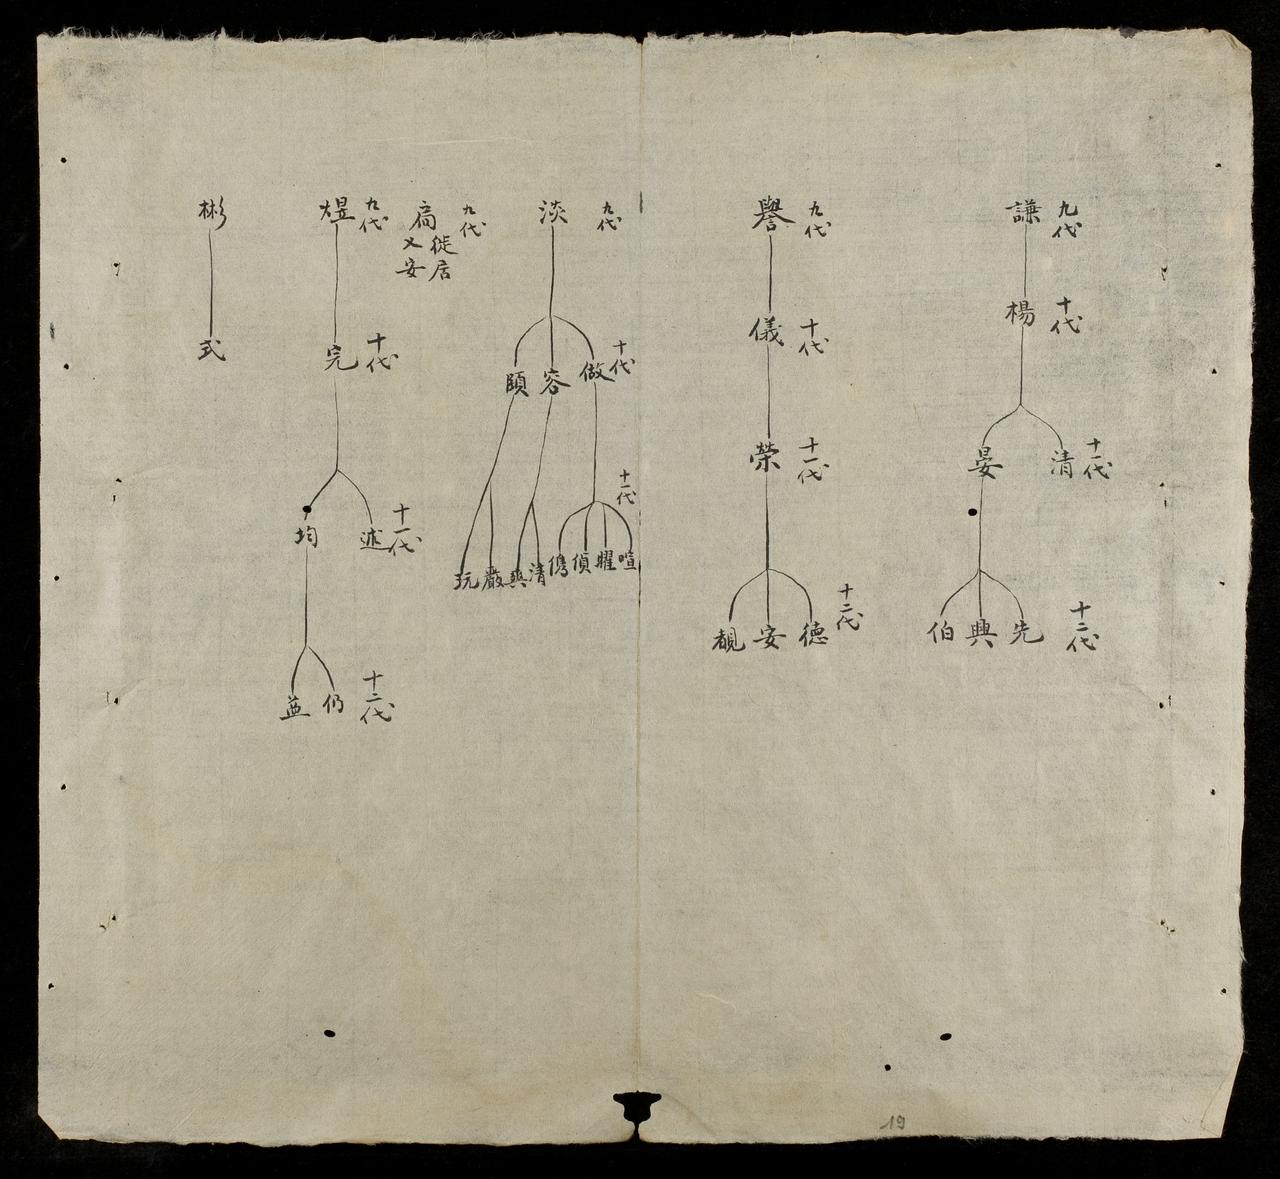 九代
謙
十代
楊
十一代
清
晏
十二代
先
興
伯
九代
譽
十代
儀
十一代
榮
十二代
德
安
覩
九代
淡
十代
做
容
頤
十一代
喧
曜
偵
儁
清
爽
嚴
玩
九代
徙居
乂安
九代
煜
十代
完
十一代
述
均
十二代
仍
彬
式
19